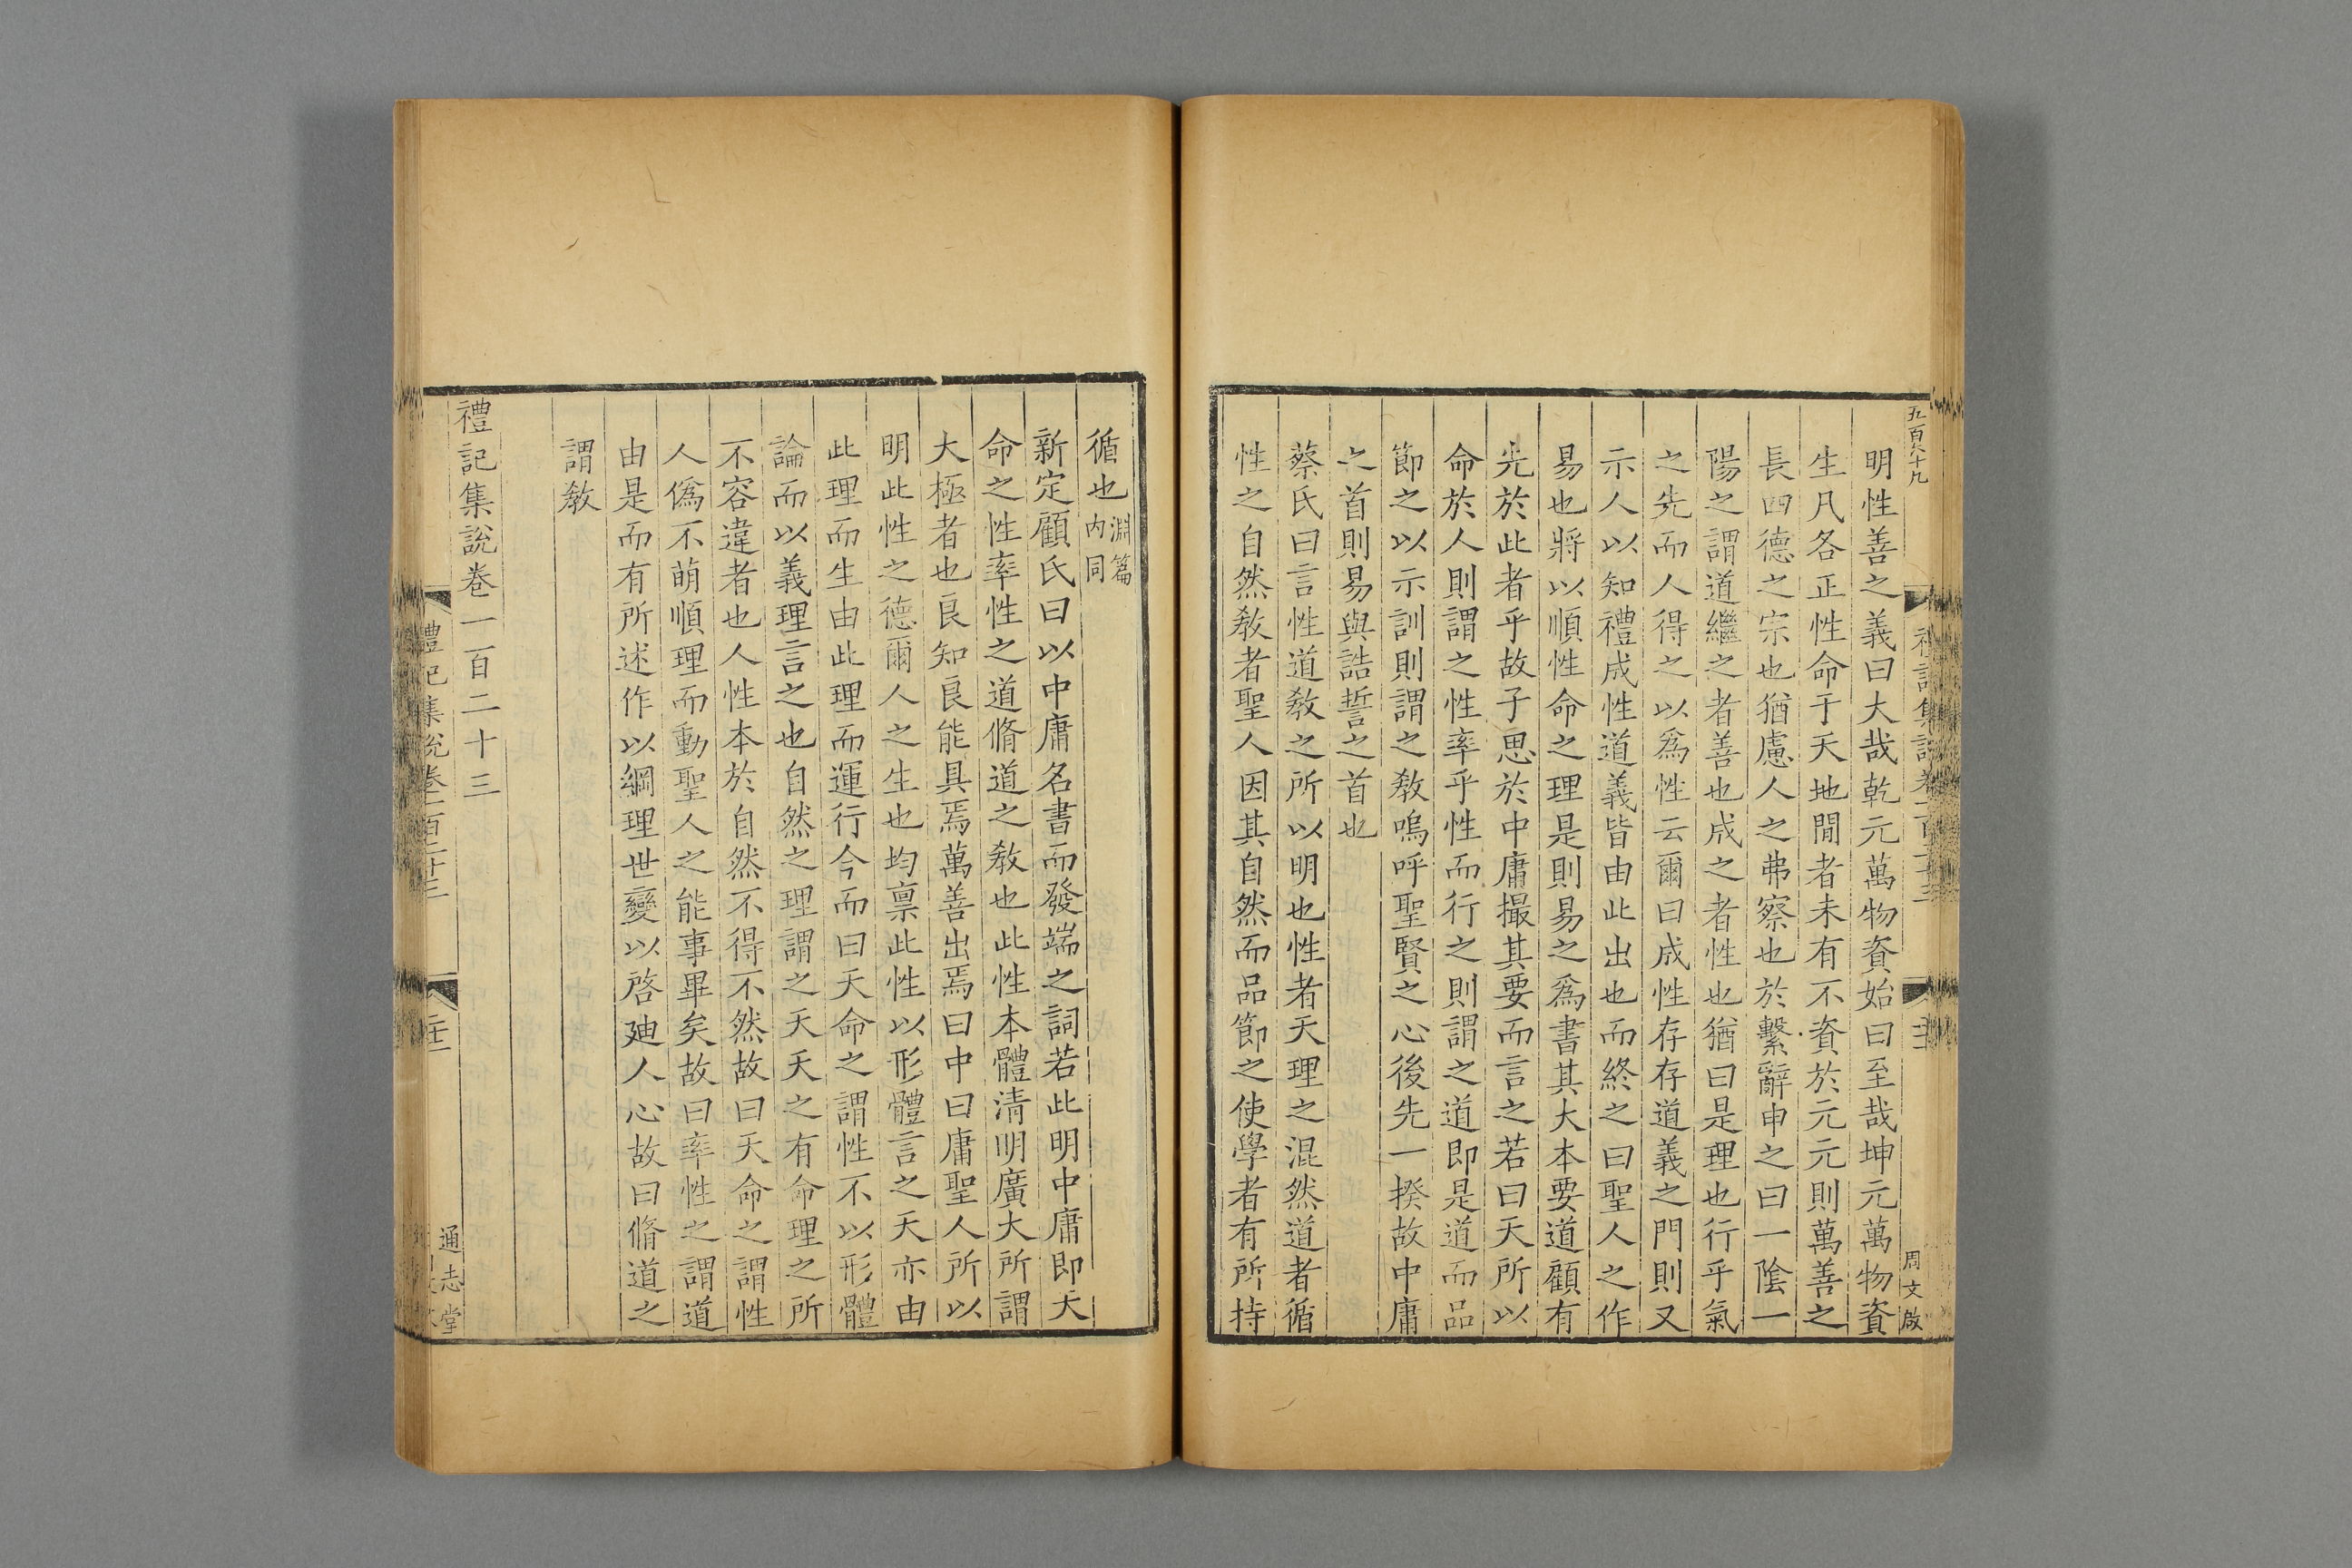 五百六十九
周文啟
明性善之義曰大哉乾元萬物資始曰至哉坤元萬物資
生凡各正性命于天地閒者未有不資於元元則萬善之
長四德之宗也猶慮人之弗察也於繫辭申之曰一陰一
陽之謂道繼之者善也成之者性也猶曰是理也行乎氣
之先而人得之以爲性云爾曰成性存存道義之門則又
示人以知禮成性道義皆由此出也而終之曰聖人之作
易也將以順性命之理是則易之爲書其大本要道顧有
先於此者乎故子思於中庸撮其要而言之若曰天所以
命於人則謂之性率乎性而行之則謂之道即是道而品
節之以示訓則謂之教嗚呼聖賢之心後先一揆故中庸
之首則易與誥誓之首也
蔡氏曰言性道教之所以明也性者天理之混然道者循
性之自然教者聖人因其自然而品節之使學者有所持
循也淵篇
内同
新定顧氏曰以中庸名書而發端之詞若此明中庸即天
命之性率性之道脩道之教也此性本體清明廣大所謂
大極者也良知良能具焉萬善出焉曰中曰庸聖人所以
明此性之德爾人之生也均禀此性以形體言之天亦由
此理而生由此理而運行今而曰天命之謂性不以形體
論而以義理言之也自然之理謂之天天之有命理之所
不容違者也人性本於自然不得不然故曰天命之謂性
人僞不萌順理而動聖人之能事畢矣故曰率性之謂道
由是而有所述作以綱理世變以啓廸人心故曰脩道之
謂教
禮記集說卷一百二十三
禮記集說卷一百二十三
通志堂